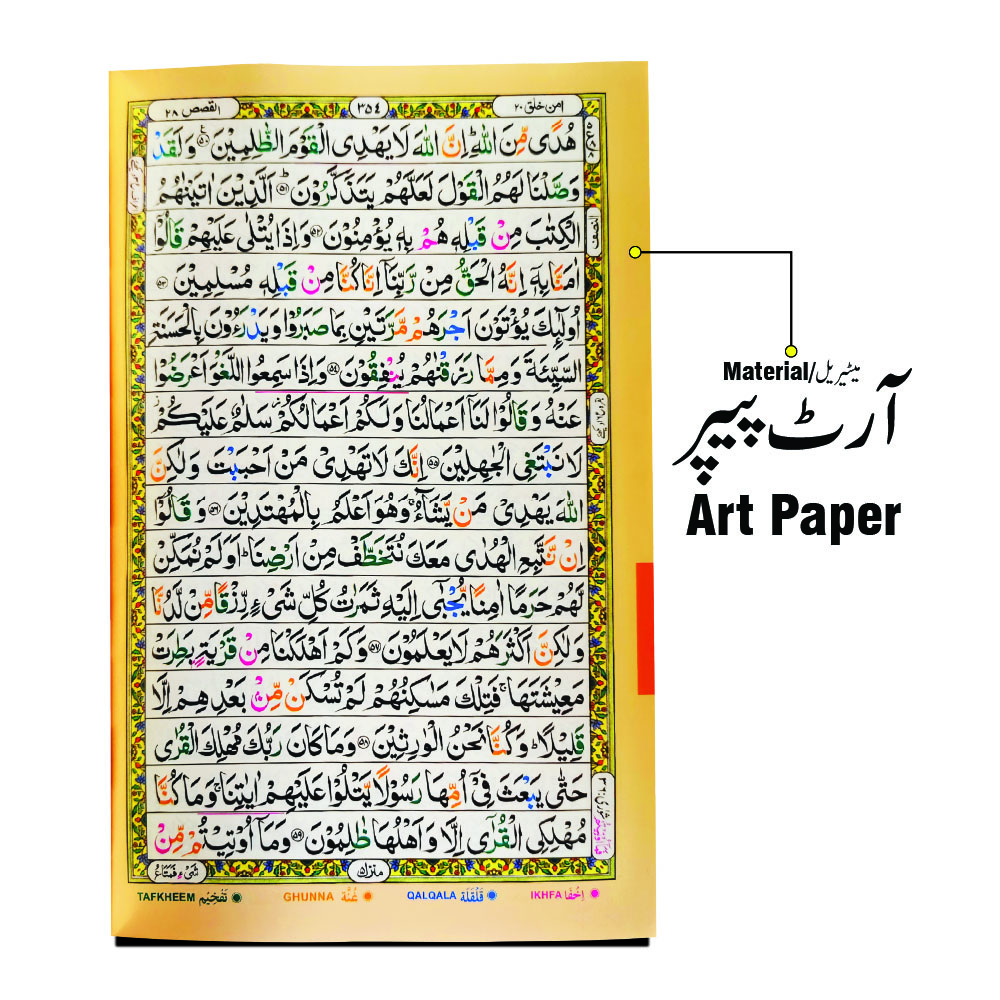 امن خلق ۲۰
۳۵٤
القصص ۲۸
هُدًى مِّنَ اللّٰهِ ؕ اِنَّ اللّٰهَ لَا يَهْدِى الْقَوْمَ الظّٰلِمِيْنَ ۵۰ وَلَقَدْ
وَصَّلْنَا لَهُمُ الْقَوْلَ لَعَلَّهُمْ يَتَذَكَّرُوْنَ ؕ ۵۱ اَلَّذِيْنَ اٰتَيْنٰهُمُ
الْكِتٰبَ مِنْ قَبْلِهٖ هُمْ بِهٖ يُؤْمِنُوْنَ ۵۲ وَاِذَا يُتْلٰى عَلَيْهِمْ قَالُوْۤا
النصف
اٰمَنَّا بِهٖۤ اِنَّهُ الْحَقُّ مِنْ رَّبِّنَاۤ اِنَّا كُنَّا مِنْ قَبْلِهٖ مُسْلِمِيْنَ ۵۳
اُولٰٓئِكَ يُؤْتَوْنَ اَجْرَهُمْ مَّرَّتَيْنِ بِمَا صَبَرُوْا وَيَدْرَءُوْنَ بِالْحَسَنَةِ
السَّيِّئَةَ وَمِمَّا رَزَقْنٰهُمْ يُنْفِقُوْنَ ۵٤ وَاِذَا سَمِعُوا اللَّغْوَ اَعْرَضُوْا
عَنْهُ وَقَالُوْا لَنَاۤ اَعْمَالُنَا وَلَكُمْ اَعْمَالُكُمْ سَلٰمٌ عَلَيْكُمْ
لَا نَبْتَغِى الْجٰهِلِيْنَ ۵۵ اِنَّكَ لَا تَهْدِىْ مَنْ اَحْبَبْتَ وَلٰكِنَّ
اللّٰهَ يَهْدِىْ مَنْ يَّشَآءُ ۚ وَهُوَ اَعْلَمُ بِالْمُهْتَدِيْنَ ۵٦ وَقَالُوْۤا
اِنْ نَّتَّبِعِ الْهُدٰى مَعَكَ نُتَخَطَّفْ مِنْ اَرْضِنَا ؕ اَوَلَمْ نُمَكِّنْ
لَّهُمْ حَرَمًا اٰمِنًا يُّجْبٰٓى اِلَيْهِ ثَمَرٰتُ كُلِّ شَىْءٍ رِّزْقًا مِّنْ لَّدُنَّا
وَلٰكِنَّ اَكْثَرَهُمْ لَا يَعْلَمُوْنَ ۵۷ وَكَمْ اَهْلَكْنَا مِنْ قَرْيَةٍۢ بَطِرَتْ
مَعِيْشَتَهَا ۚ فَتِلْكَ مَسٰكِنُهُمْ لَمْ تُسْكَنْ مِّنْۢ بَعْدِهِمْ اِلَّا
قَلِيْلًا ؕ وَكُنَّا نَحْنُ الْوٰرِثِيْنَ ۵۸ وَمَا كَانَ رَبُّكَ مُهْلِكَ الْقُرٰى
حَتّٰى يَبْعَثَ فِىْۤ اُمِّهَا رَسُوْلًا يَّتْلُوْا عَلَيْهِمْ اٰيٰتِنَا ۚ وَمَا كُنَّا
مُهْلِكِى الْقُرٰٓى اِلَّا وَاَهْلُهَا ظٰلِمُوْنَ ۵۹ وَمَاۤ اُوْتِيْتُمْ مِّنْ
منزل ۵
شَىْءٍ فَمَتَاعُ
IKHFA اِخْفَا
QALQALA قَلْقَلَة
GHUNNA غُنَّة
TAFKHEEM تَفْخِيْم
Material/میٹیریل
آرٹ پیپر
Art Paper